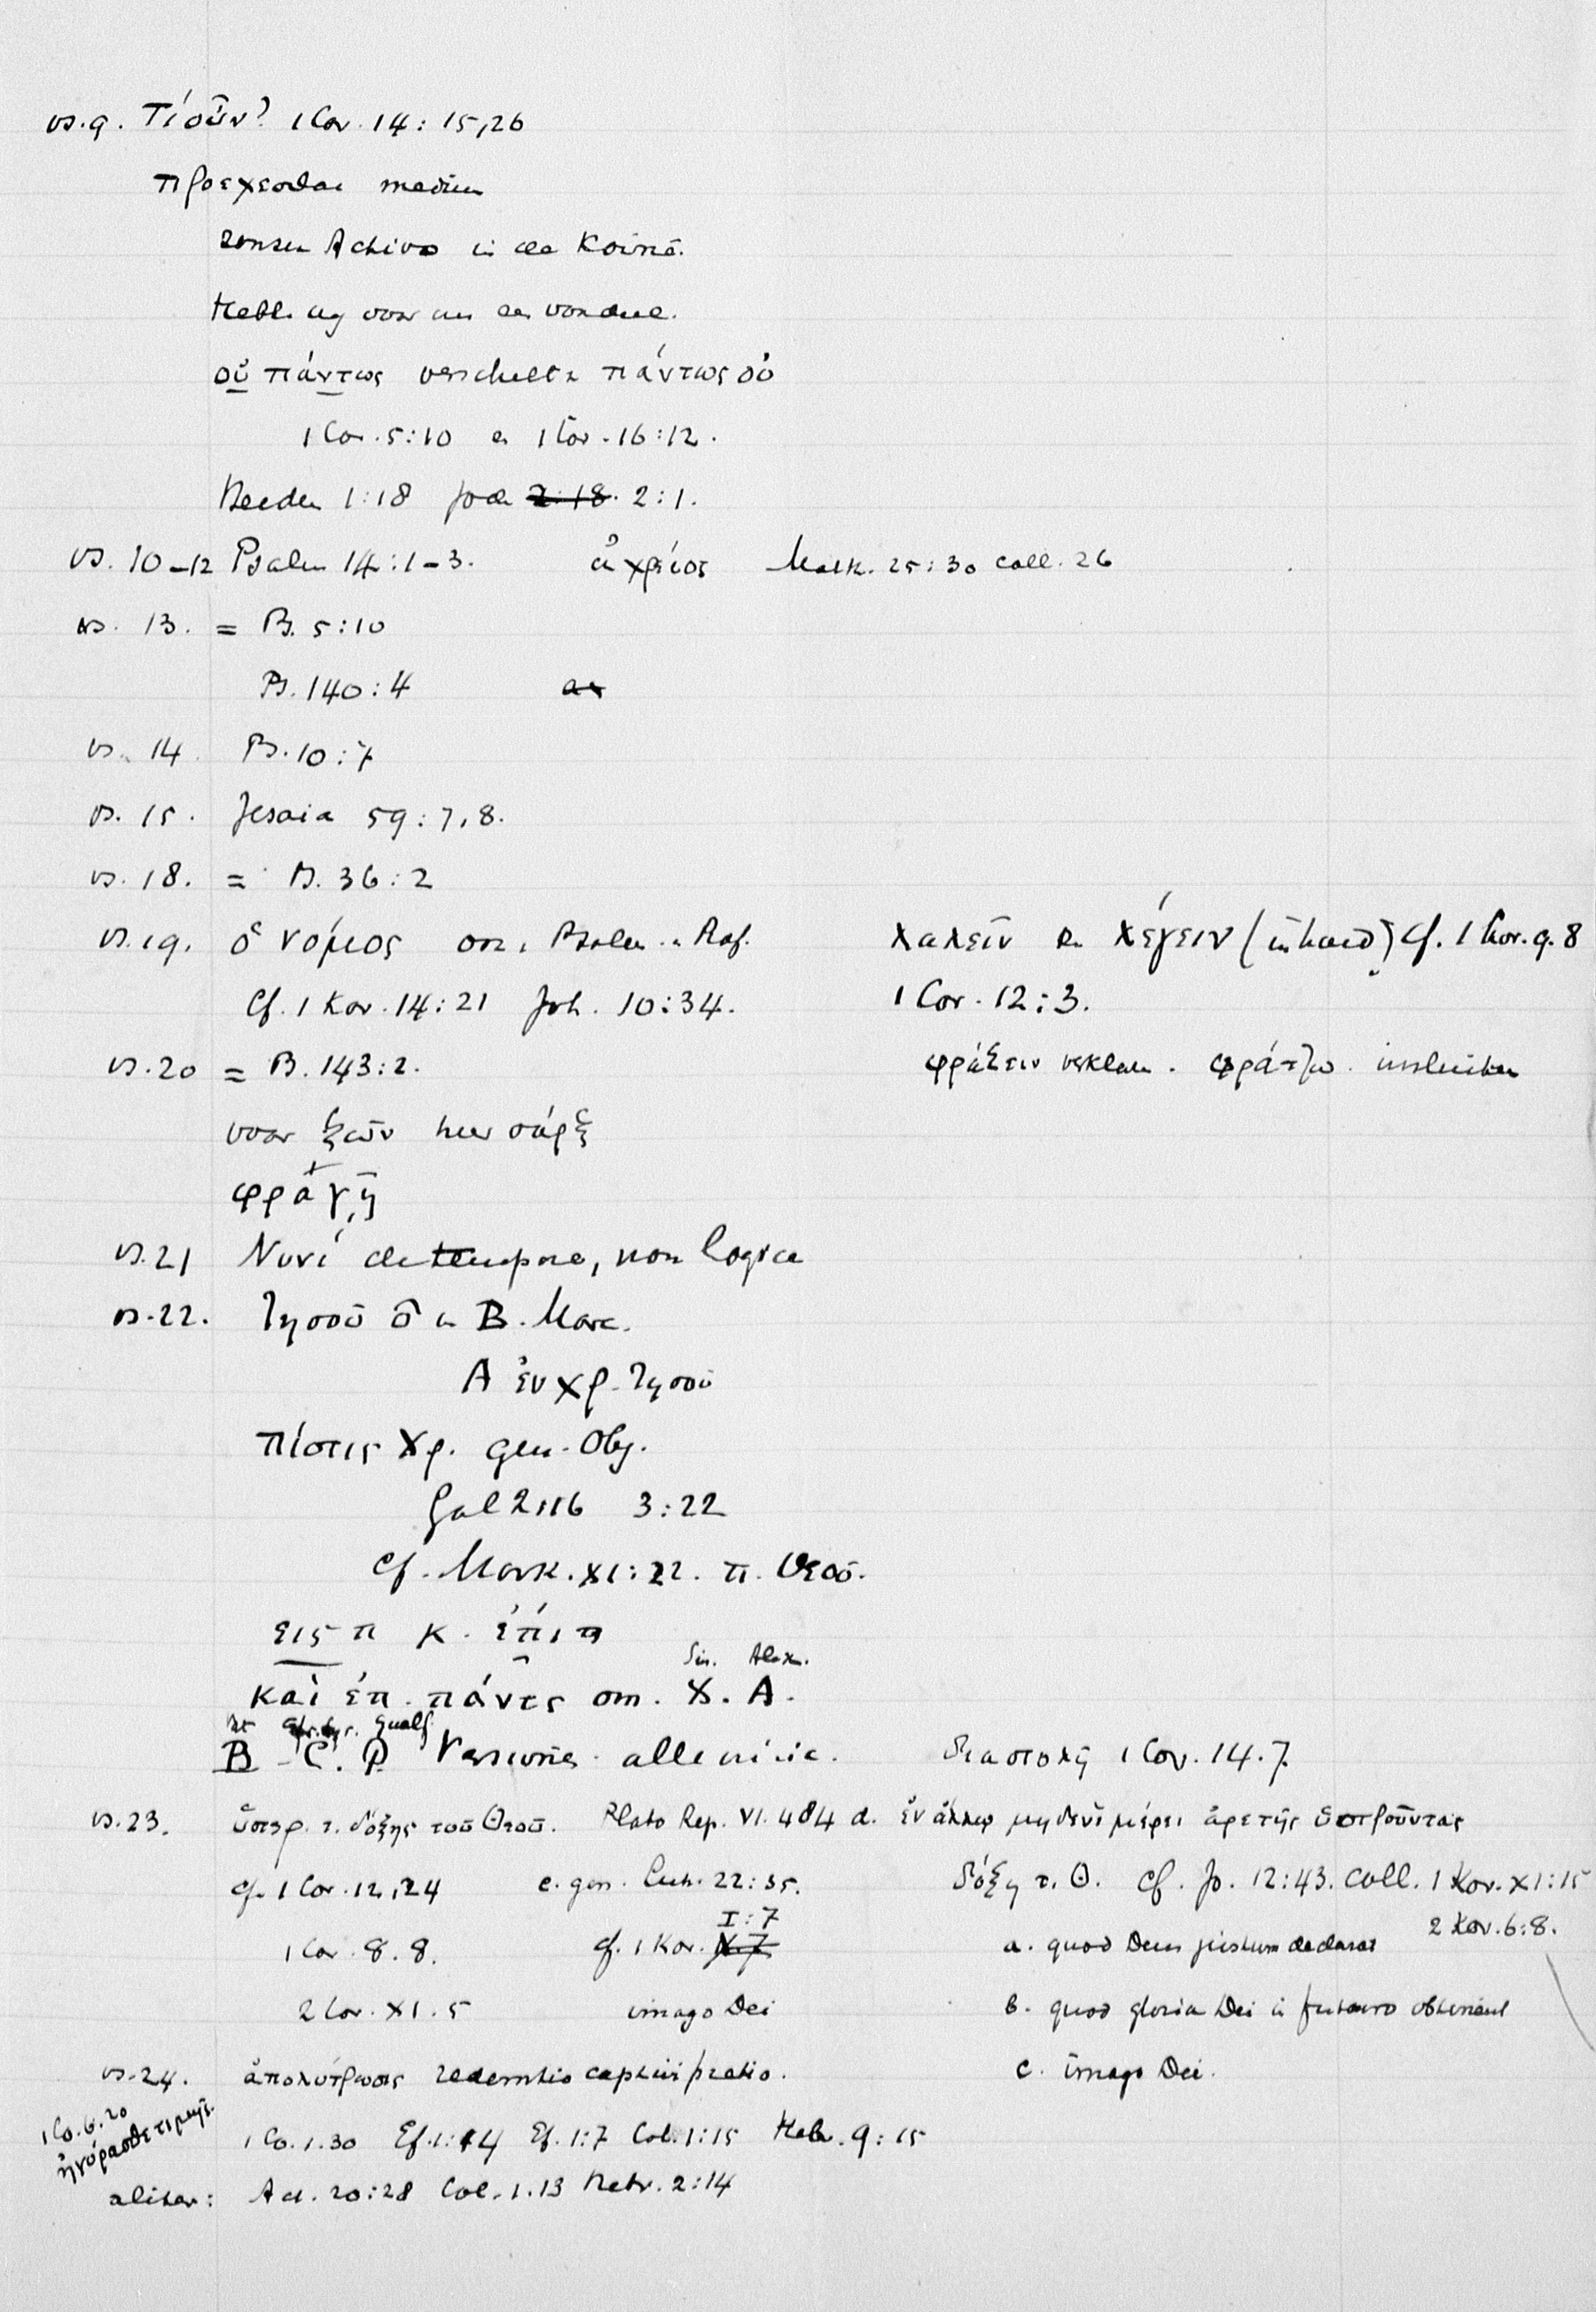 vs. 9. Τί οὖν? 1 Cor. 14: 15, 26
προεχεσθαι medium
zonder Activo in de Koinè.
Hebben wij voor ons een
οὐ πάντως verschilt v πάντως οὐ
1 Cor. 5:10 en 1 Cor. 16:12.
Heeden 1:18 Joden 2:18. 2:1.
vs. 10-12 Psalm 14:1-3. ἀχρεῖος Matth. 25:30 coll. 26
vs. 13. = Ps. 5:10
Ps. 140:4
vs. 14. Ps. 10:7
vs. 15. Jesaia 59:7,8.
vs. 18. = Ps. 36:2
vs. 19. ὁ νόμος ook Psalm. en Prof. λαλεῖν en λέγειν (inhoud) cf. 1 Kor. 9.8
Cf. 1 Kor. 14:21 Joh. 10:34. 1 Cor. 12:3.
vs. 20 = Ps. 143:2. φράζειν verklaren. φράττω. insluiten
voor ζῶν hier σάρξ
φραγῇ
vs. 21 Νυνί de tempore, non logice
vs. 22. Ἰησοῦ om B. Marc.
A ἐν χρ. Ἰησοῦ
πίστις Χρ. gen. Obj.
Gal 2:16 3:22
cf. Mark. XI:22. π. Θεοῦ.
εις π κ. ἐπί π
Sin. Alex.
καὶ ἐπ. πάντς om. א. A.
Guelf.
B C. P Versiones alle
διαστολή 1 Cor. 14.7.
vs. 23. ὑστερ. τ. δόξης τοῦ Θεοῦ. Plato Rep. VI. 484 d. ἐν ἄλλῳ μηδενὶ μέρει ἀρετῆς ὑστεροῦντας
cf. 1 Cor. 12,24 c. gen. Luk. 22:35. δόξη τ. Θ. cf. Jo. 12:43. coll. 1 Kor. XI:15
I:7
1 Cor. 8.8. cf. 1 Kor. X7 a. quod Deus justum declarat 2 Kor. 6:8.
2 Cor. XI. 5 imago Dei b. quod gloria Dei in futuro obtinent
vs. 24. ἀπολύτρωσις redemtio captivi pretio. c. imago Dei.
1 Co. 6. 20
ἠγοράσθητε τιμῆς.
1 Co. 1.30 Ef. 1:14 Ef. 1:7 Col. 1:15 Hebr. 9:15
aliter: Act. 20:28 Col. 1.13 Hebr. 2:14